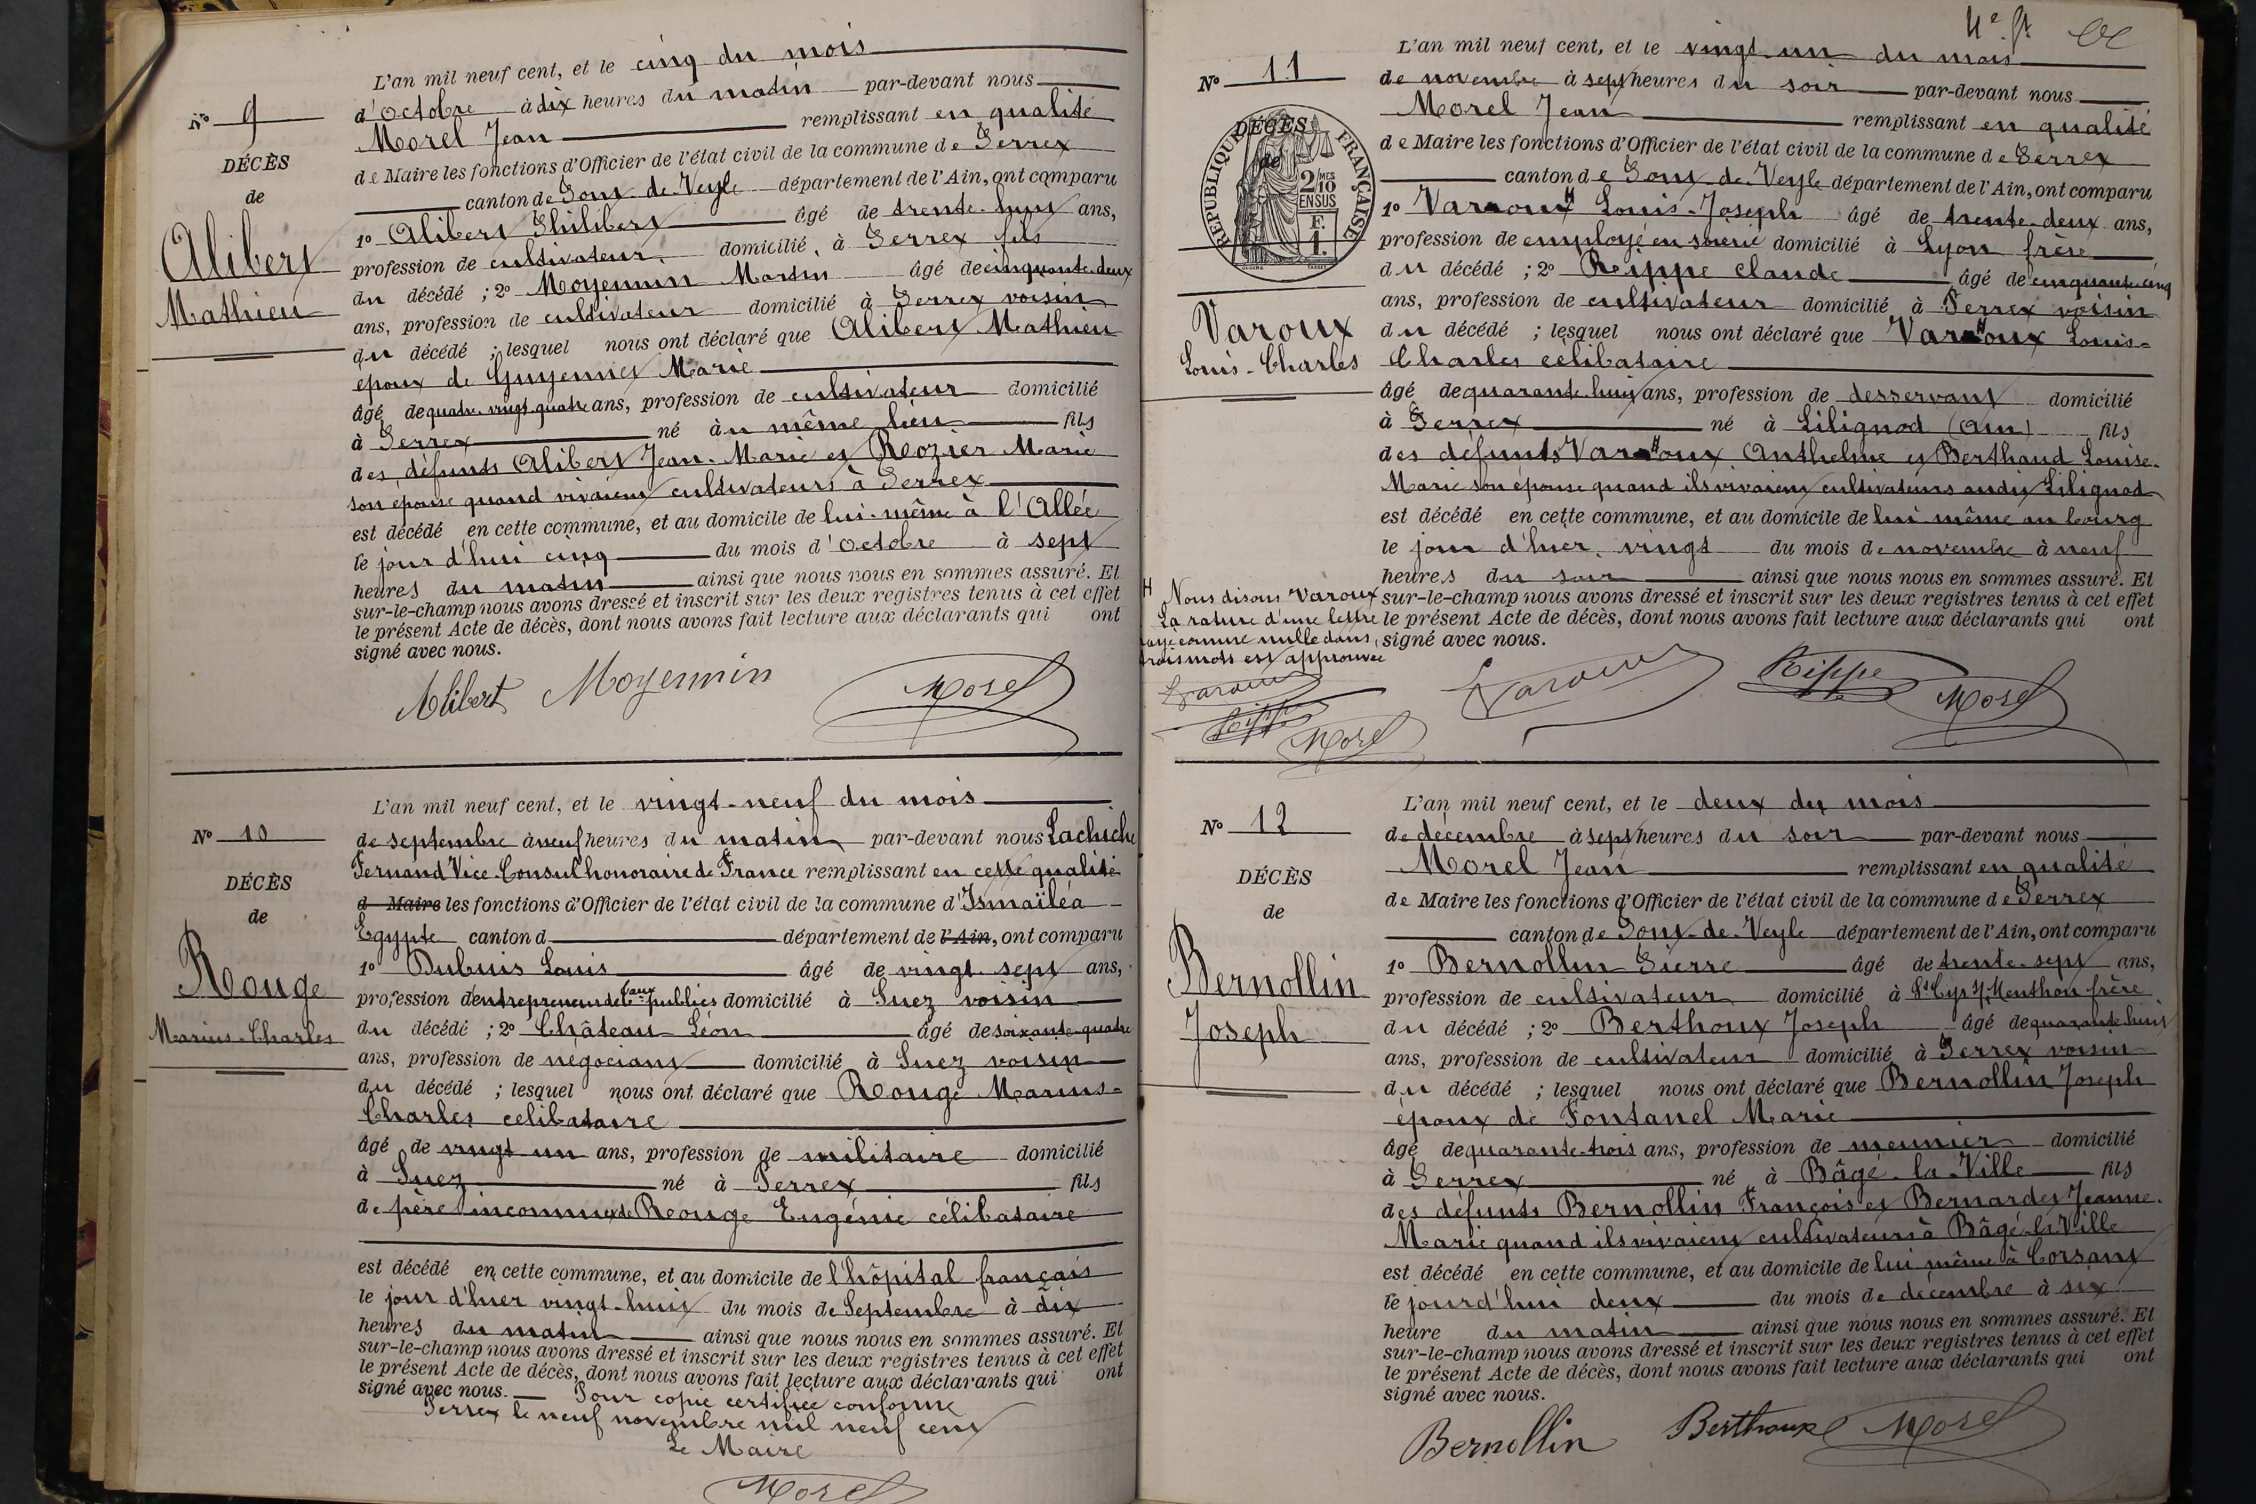 L'an mil neuf cent, et le cinq du mois
N° 9
d'Octobre à dix heures du matin par-devant nous
Morel Jean remplissant en qualité
DÉCÈS
de Maire les fonctions d'Officier de l'état civil de la commune de Perrex
de
canton de Pont-de-Veyle département de l'Ain, ont comparu
Alibert
Mathieu
1° Alibert Philibert âgé de trente-huit ans,
profession de cultivateur domicilié à Perrex fils
du décédé ; 2° Moyennin Martin âgé de cinquante-deux
ans, profession de cultivateur domicilié à Perrex voisin
du décédé ; lesquel nous ont déclaré que Alibert Mathieu
époux de Guyennet Marie
âgé de quatre-vingt-quatre ans, profession de cultivateur domicilié
à Perrex né au même lieu fils
des défunts Alibert Jean-Marie et Rozier Marie
son épouse quand vivaient cultivateurs à Perrex
est décédé en cette commune, et au domicile de lui-même à l'Allée
le jour d'hui cinq du mois d'Octobre à sept
heures du matin ainsi que nous nous en sommes assuré. Et
sur-le-champ nous avons dressé et inscrit sur les deux registres tenus à cet effet
le présent Acte de décès, dont nous avons fait lecture aux déclarants qui ont
signé avec nous.
Alibert Moyennin Morel
L'an mil neuf cent, et le vingt-neuf du mois
N° 10
de septembre à neuf heures du matin par-devant nous Lachiche
Fernand Vice-Consul honoraire de France remplissant en cette qualité
DÉCÈS
d Maire les fonctions d'Officier de l'état civil de la commune d'Ismaïléa
de
Egypte canton d département de l'Ain, ont comparu
Rouge
Marius-Charles
1° Dubuis Louis âgé de vingt-sept ans,
profession d'entrepreneur de travaux publics domicilié à Suez voisin
du décédé ; 2° Château Léon âgé de soixante-quatre
ans, profession de négociant domicilié à Suez voisin
du décédé ; lesquel nous ont déclaré que Rouge Marius-
Charles célibataire
âgé de vingt-un ans, profession de militaire domicilié
à Suez né à Perrex fils
de père inconnu et de Rouge Eugénie célibataire
est décédé en cette commune, et au domicile de l'hôpital français
le jour d'hier vingt-huit du mois de Septembre à dix
heures du matin ainsi que nous nous en sommes assuré. Et
sur-le-champ nous avons dressé et inscrit sur les deux registres tenus à cet effet
le présent Acte de décès, dont nous avons fait lecture aux déclarants qui ont
signé avec nous. Pour copie certifiée conforme
Perrex le neuf novembre mil neuf cent
Le Maire
Morel
L'an mil neuf cent, et le vingt-un du mois
N° 11
de novembre à sept heures du soir par-devant nous
Morel Jean remplissant en qualité
DÉCÈS
de
RÉPUBLIQUE FRANÇAISE
2 MES
10
EN SUS
F.
1.
de Maire les fonctions d'Officier de l'état civil de la commune de Perrex
canton de Pont-de-Veyle département de l'Ain, ont comparu
1° Varroux Louis-Joseph âgé de trente-deux ans,
profession de employé en soierie domicilié à Lyon frère
du décédé ; 2° Rippe Claude âgé de cinquante-cinq
ans, profession de cultivateur domicilié à Perrex voisin
Varoux
Louis-Charles
du décédé ; lesquel nous ont déclaré que Varroux Louis-
Charles célibataire
âgé de quarante-huit ans, profession de desservant domicilié
à Perrex né à Lilignod (Ain) fils
des défunts Varroux Anthelme et Berthaud Louise-
Marie son épouse quand ils vivaient cultivateurs audit Lilignod
est décédé en cette commune, et au domicile de lui même au bourg
le jour d'hier vingt du mois de novembre à neuf
heures du soir ainsi que nous nous en sommes assuré. Et
sur-le-champ nous avons dressé et inscrit sur les deux registres tenus à cet effet
le présent Acte de décès, dont nous avons fait lecture aux déclarants qui ont
signé avec nous.
H Nous disons Varoux
La rature d'une lettre
rayé comme nulle dans
trois mots est approuvée
Varoux
Rippe
Morel
Varoux Rippe Morel
L'an mil neuf cent, et le deux du mois
N° 12
de décembre à sept heures du soir par-devant nous
Morel Jean remplissant en qualité
DÉCÈS
de Maire les fonctions d'Officier de l'état civil de la commune de Perrex
de
canton de Pont-de-Veyle département de l'Ain, ont comparu
Bernollin
Joseph
1° Bernollin Pierre âgé de trente-sept ans,
profession de cultivateur domicilié à St Cyr s/ Menthon frère
du décédé ; 2° Berthoux Joseph âgé de quarante-huit
ans, profession de cultivateur domicilié à Perrex voisin
du décédé ; lesquel nous ont déclaré que Bernollin Joseph
époux de Fontanel Marie
âgé de quarante-trois ans, profession de meunier domicilié
à Perrex né à Bâgé-la-Ville fils
des défunts Bernollin François et Bernardet Jeanne-
Marie quand ils vivaient cultivateurs à Bâgé-la-Ville
est décédé en cette commune, et au domicile de lui même à Corsant
le jourd'hui deux du mois de décembre à six
heure du matin ainsi que nous nous en sommes assuré. Et
sur-le-champ nous avons dressé et inscrit sur les deux registres tenus à cet effet
le présent Acte de décès, dont nous avons fait lecture aux déclarants qui ont
signé avec nous.
Bernollin Berthoux Morel